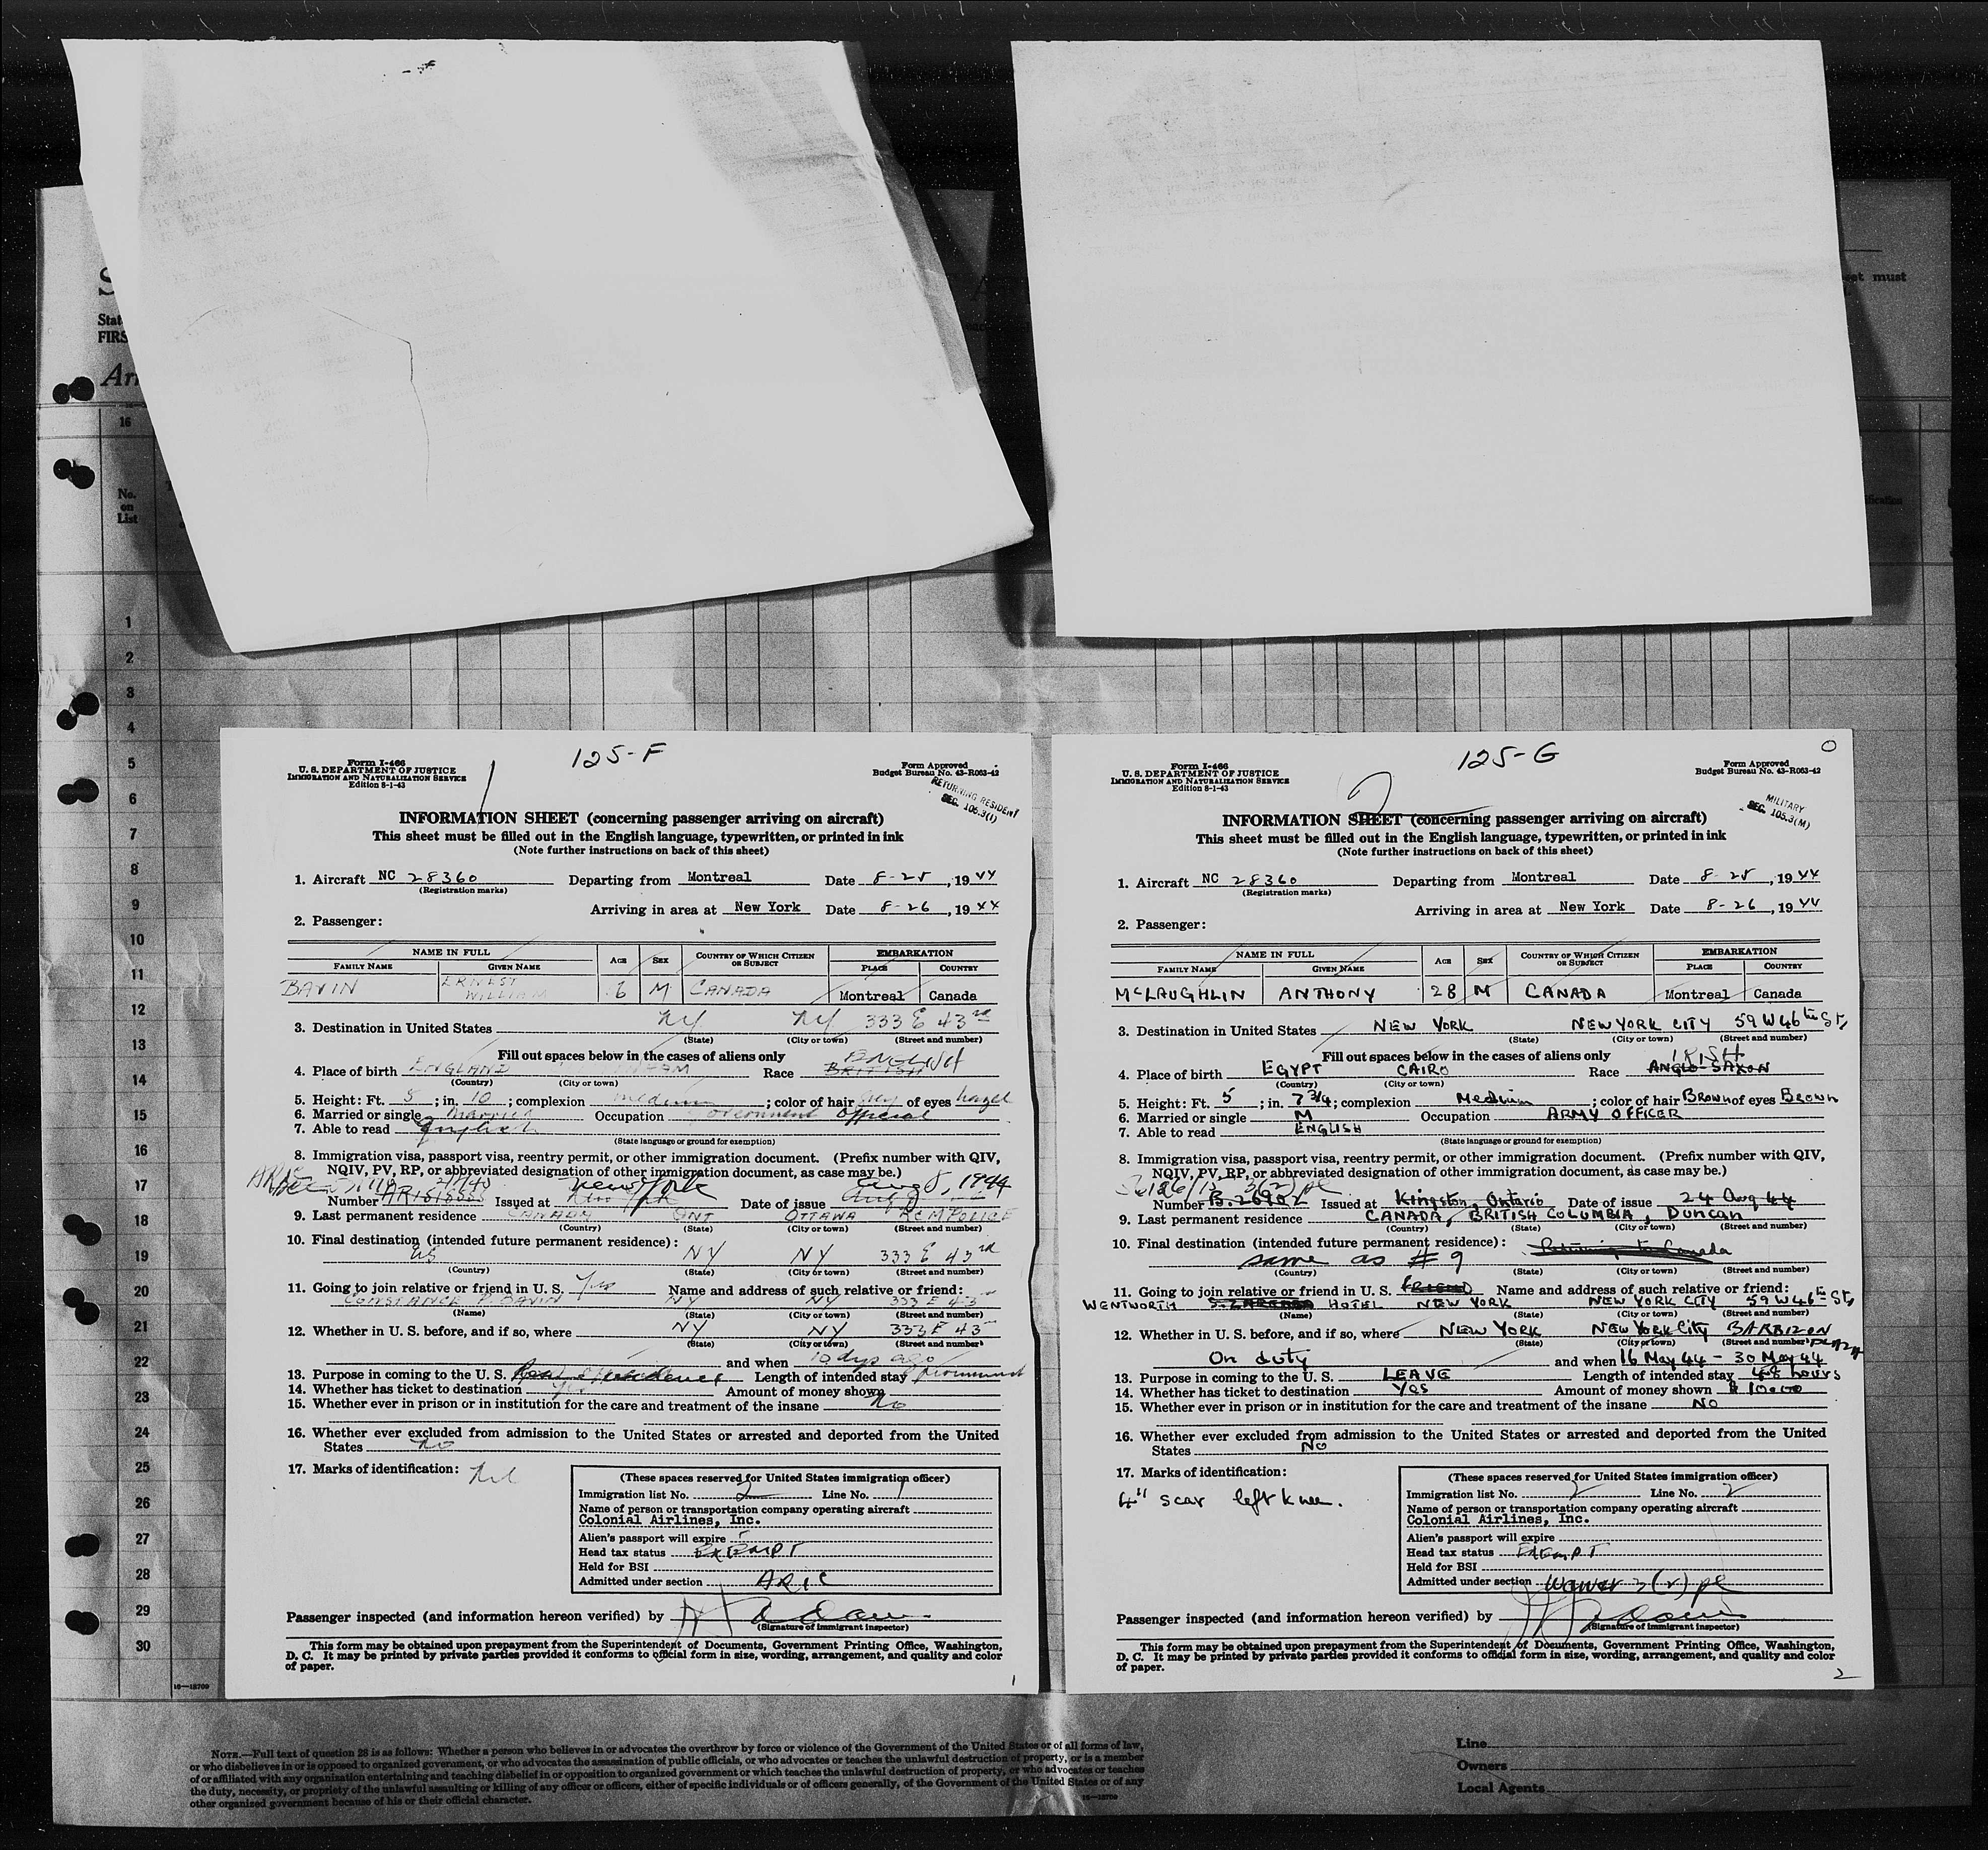 S
Stat
FIRS
Arr
et must
16
No.
on
List
1
2
3
4
5
6
7
8
9
10
11
12
13
14
15
16
17
18
19
20
21
22
23
24
25
26
27
28
29
30
16—18700
125-F
1
Form I-466
U. S. DEPARTMENT OF JUSTICE
IMMIGRATION AND NATURALIZATION SERVICE
Edition 8-1-43
Form Approved
Budget Bureau No. 43-R063-42
RETURNING RESIDENT
SEC. 105.3(1)
INFORMATION SHEET (concerning passenger arriving on aircraft)
This sheet must be filled out in the English language, typewritten, or printed in ink
(Note further instructions on back of this sheet)
1. Aircraft NC 28360 Departing from Montreal Date 8-25, 1944
(Registration marks)
Arriving in area at New York Date 8-26, 1944
2. Passenger:
NAME IN FULL AGE SEX COUNTRY OF WHICH CITIZEN OR SUBJECT EMBARKATION
FAMILY NAME GIVEN NAME PLACE COUNTRY
BAVIN ERNEST WILLIAM M CANADA Montreal Canada
3. Destination in United States NY NY 333 E 43rd
(State) (City or town) (Street and number)
Fill out spaces below in the cases of aliens only
4. Place of birth ENGLAND Race BRITISH ENGLISH
(Country) (City or town)
5. Height: Ft. 5; in. 10; complexion medium; color of hair grey of eyes hazel
6. Married or single married Occupation Government official
7. Able to read English
(State language or ground for exemption)
8. Immigration visa, passport visa, reentry permit, or other immigration document. (Prefix number with QIV,
NQIV, PV, RP, or abbreviated designation of other immigration document, as case may be.)
New York Aug 8, 1944
Number Issued at New York Date of issue
9. Last permanent residence CANADA ONT OTTAWA RCM POLICE
(Country) (State) (City or town) (Street and number)
10. Final destination (intended future permanent residence):
US NY NY 333 E 43rd
(Country) (State) (City or town) (Street and number)
11. Going to join relative or friend in U. S. Yes Name and address of such relative or friend:
CONSTANCE P. BAVIN NY NY 333 E 43
(Name) (State) (City or town) (Street and number)
12. Whether in U. S. before, and if so, where NY NY 333 E 43
(State) (City or town) (Street and number)
and when 10 dys ago
13. Purpose in coming to the U. S. residence Length of intended stay permanent
14. Whether has ticket to destination yes Amount of money shown
15. Whether ever in prison or in institution for the care and treatment of the insane no
16. Whether ever excluded from admission to the United States or arrested and deported from the United
States no
17. Marks of identification: Nil
(These spaces reserved for United States immigration officer)
Immigration list No. 2 Line No. 1
Name of person or transportation company operating aircraft
Colonial Airlines, Inc.
Alien's passport will expire
Head tax status EXEMPT
Held for BSI
Admitted under section ARIC
Passenger inspected (and information hereon verified) by
(Signature of immigrant inspector)
This form may be obtained upon prepayment from the Superintendent of Documents, Government Printing Office, Washington,
D. C. It may be printed by private parties provided it conforms to official form in size, wording, arrangement, and quality and color
of paper.
1
125-G
2
Form I-466
U. S. DEPARTMENT OF JUSTICE
IMMIGRATION AND NATURALIZATION SERVICE
Edition 8-1-43
Form Approved
Budget Bureau No. 43-R063-42
MILITARY
SEC. 105.3(M)
INFORMATION SHEET (concerning passenger arriving on aircraft)
This sheet must be filled out in the English language, typewritten, or printed in ink
(Note further instructions on back of this sheet)
1. Aircraft NC 28360 Departing from Montreal Date 8-25, 1944
(Registration marks)
Arriving in area at New York Date 8-26, 1944
2. Passenger:
NAME IN FULL AGE SEX COUNTRY OF WHICH CITIZEN OR SUBJECT EMBARKATION
FAMILY NAME GIVEN NAME PLACE COUNTRY
McLAUGHLIN ANTHONY 28 M CANADA Montreal Canada
3. Destination in United States NEW YORK NEW YORK CITY 59 W 46th St,
(State) (City or town) (Street and number)
Fill out spaces below in the cases of aliens only
IRISH
4. Place of birth EGYPT CAIRO Race ANGLO-SAXON
(Country) (City or town)
5. Height: Ft. 5; in. 7 3/4; complexion Medium; color of hair BROWN of eyes BROWN
6. Married or single M Occupation ARMY OFFICER
7. Able to read ENGLISH
(State language or ground for exemption)
8. Immigration visa, passport visa, reentry permit, or other immigration document. (Prefix number with QIV,
NQIV, PV, RP, or abbreviated designation of other immigration document, as case may be.)
Number B.26902 Issued at Kingston, Ontario Date of issue 24 Aug 44
9. Last permanent residence CANADA, BRITISH COLUMBIA, Duncan
(Country) (State) (City or town) (Street and number)
10. Final destination (intended future permanent residence): Returning to Canada
same as # 9
(Country) (State) (City or town) (Street and number)
11. Going to join relative or friend in U. S. FRIEND Name and address of such relative or friend:
WENTWORTH HOTEL NEW YORK NEW YORK CITY 59 W 46th St,
(Name) (State) (City or town) (Street and number)
12. Whether in U. S. before, and if so, where NEW YORK NEW YORK City BARBIZON PLAZA
(State) (City or town) (Street and number)
On duty and when 16 May 44 - 30 May 44
13. Purpose in coming to the U. S. LEAVE Length of intended stay 48 hours
14. Whether has ticket to destination Yes Amount of money shown $ 10.00
15. Whether ever in prison or in institution for the care and treatment of the insane NO
16. Whether ever excluded from admission to the United States or arrested and deported from the United
States NO
17. Marks of identification:
4" scar left knee.
(These spaces reserved for United States immigration officer)
Immigration list No. 2 Line No. 2
Name of person or transportation company operating aircraft
Colonial Airlines, Inc.
Alien's passport will expire
Head tax status EXEMPT
Held for BSI
Admitted under section
Passenger inspected (and information hereon verified) by
(Signature of immigrant inspector)
This form may be obtained upon prepayment from the Superintendent of Documents, Government Printing Office, Washington,
D. C. It may be printed by private parties provided it conforms to official form in size, wording, arrangement, and quality and color
of paper.
2
NOTE.—Full text of question 28 is as follows: Whether a person who believes in or advocates the overthrow by force or violence of the Government of the United States or of all forms of law,
or who disbelieves in or is opposed to organized government, or who advocates the assassination of public officials, or who advocates or teaches the unlawful destruction of property, or is a member
of or affiliated with any organization entertaining and teaching disbelief in or opposition to organized government or which teaches the unlawful destruction of property, or who advocates or teaches
the duty, necessity, or propriety of the unlawful assaulting or killing of any officer or officers, either of specific individuals or of officers generally, of the Government of the United States or of any
other organized government because of his or their official character.
16—18700
Line
Owners
Local Agents